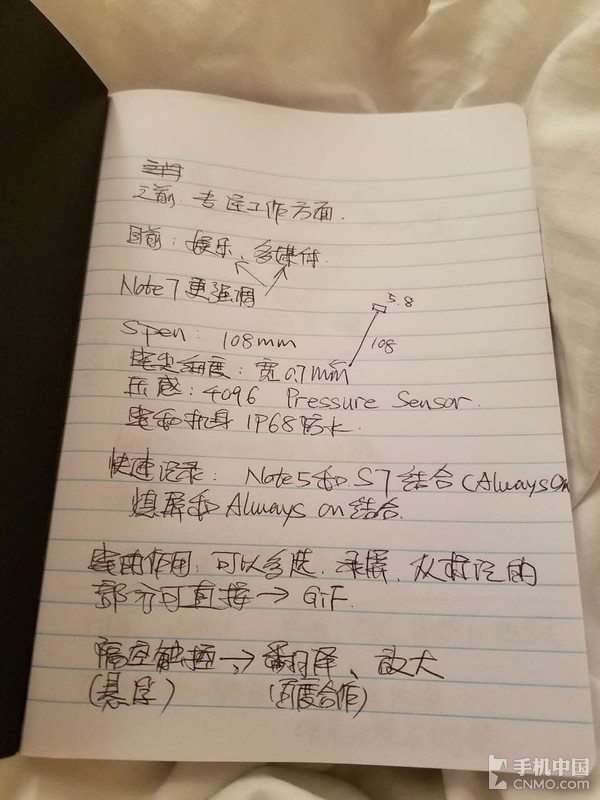 之前：专注工作方面.
目前：娱乐、多媒体.
Note7更强调
5.8
Spen: 108mm
108
笔尖细度：宽0.7mm
压感：4096 Pressure Sensor.
笔和机身 IP68防水.
快速记录： Note5和S7结合(Always On
熄屏和Always on结合.
笔的作用：可以多选、录屏、从标记的
部分可直接→GiF.
隔空触控→翻译、放大
(悬浮) (百度合作)
手机中国
CNMO.com